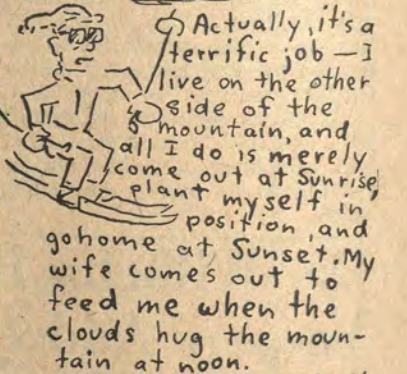 Actually, it's a
terrific job — I
live on the other
side of the
mountain, and
all I do is merely
come out at Sunrise,
plant myself in
position, and
go home at Sunset. My
wife comes out to
feed me when the
clouds hug the moun-
tain at noon.